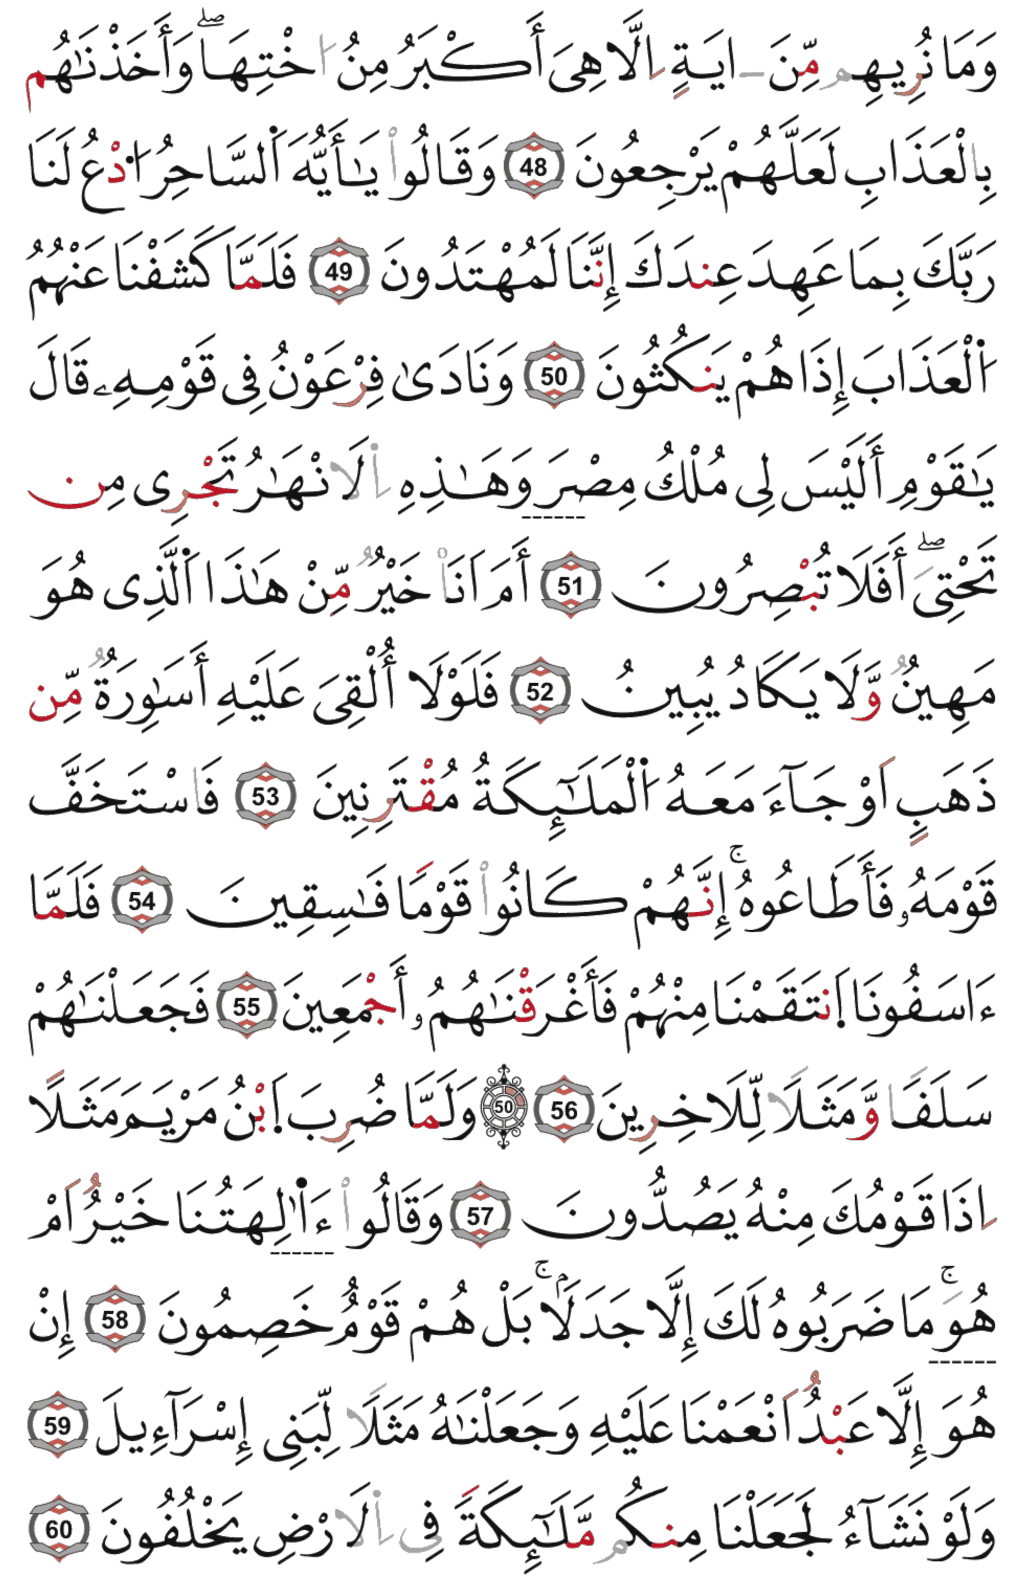 وَمَا نُرِيهِم مِّنَ ايَةٍ اِلَّا هِىَ أَكْبَرُ مِنُ اخْتِهَا ۖ وَأَخَذْنَٰهُم
بِالْعَذَابِ لَعَلَّهُمْ يَرْجِعُونَ 48 وَقَالُواْ يَٰأَيُّهَ اَ۬لسَّاحِرُ اَ۟دْعُ لَنَا
رَبَّكَ بِمَا عَهِدَ عِندَكَ إِنَّنَا لَمُهْتَدُونَ 49 فَلَمَّا كَشَفْنَا عَنْهُمُ
اُ۬لْعَذَابَ إِذَا هُمْ يَنكُثُونَ 50 وَنَادَىٰ فِرْعَوْنُ فِى قَوْمِهِۦ قَالَ
يَٰقَوْمِ أَلَيْسَ لِى مُلْكُ مِصْرَ وَهَٰذِهِ اِ۬لَانْهَٰرُ تَجْرِى مِن
تَحْتِىَ ۖ أَفَلَا تُبْصِرُونَ 51 أَمَ اَنَا۠ خَيْرٌ مِّنْ هَٰذَا اَ۬لَّذِى هُوَ
مَهِينٌ وَّلَا يَكَادُ يُبِينُ 52 فَلَوْلَا أُلْقِىَ عَلَيْهِ أَسَٰوِرَةٌ مِّن
ذَهَبٍ اَوْ جَآءَ مَعَهُ اُ۬لْمَلَٰٓئِكَةُ مُقْتَرِنِينَ 53 فَاسْتَخَفَّ
قَوْمَهُۥ فَأَطَاعُوهُ ۚ إِنَّهُمْ كَانُواْ قَوْمًا فَٰسِقِينَ 54 فَلَمَّا
ءَاسَفُونَا اَ۪نتَقَمْنَا مِنْهُمْ فَأَغْرَقْنَٰهُمُۥ أَجْمَعِينَ 55 فَجَعَلْنَٰهُمْ
سَلَفًا وَّمَثَلًا لِّلَاخِرِينَ 56 50 وَلَمَّا ضُرِبَ اَ۪بْنُ مَرْيَمَ مَثَلًا
اِذَا قَوْمُكَ مِنْهُ يَصُدُّونَ 57 وَقَالُواْ ءَاَٰ۬لِهَتُنَا خَيْرٌ اَمْ
هُوَ ۚ مَا ضَرَبُوهُ لَكَ إِلَّا جَدَلَۢا ۚ بَلْ هُمْ قَوْمٌ خَصِمُونَ 58 إِنْ
هُوَ إِلَّا عَبْدٌ اَنْعَمْنَا عَلَيْهِ وَجَعَلْنَٰهُ مَثَلًا لِّبَنِى إِسْرَآءِيلَ 59
وَلَوْ نَشَآءُ لَجَعَلْنَا مِنكُم مَّلَٰٓئِكَةً فِى اِ۬لَارْضِ يَخْلُفُونَ 60